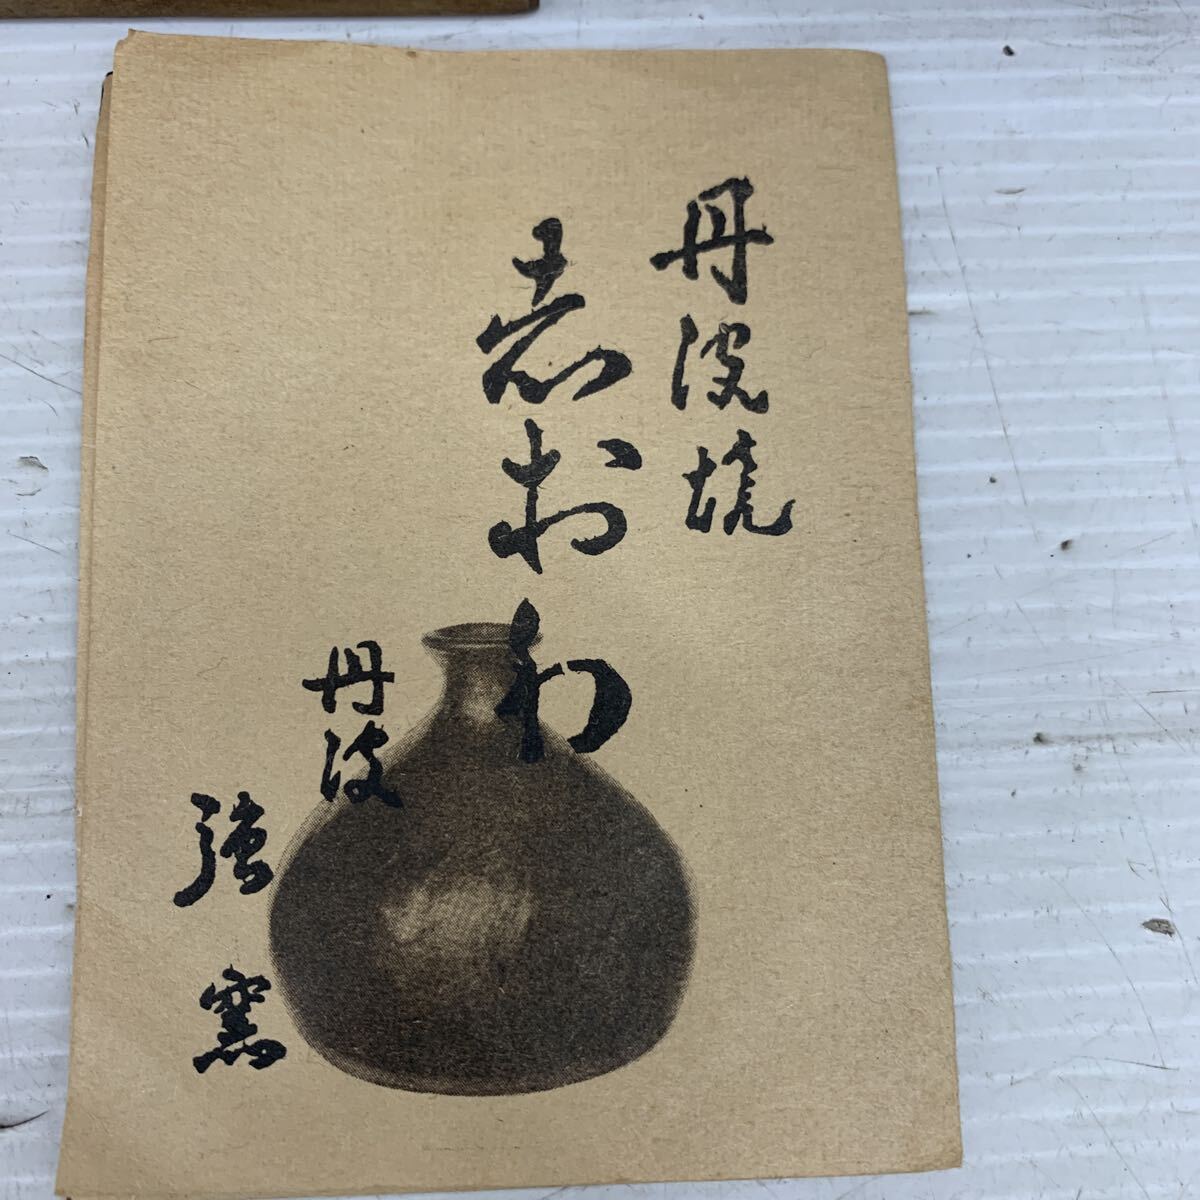 丹波焼
志おり
丹波
強窯